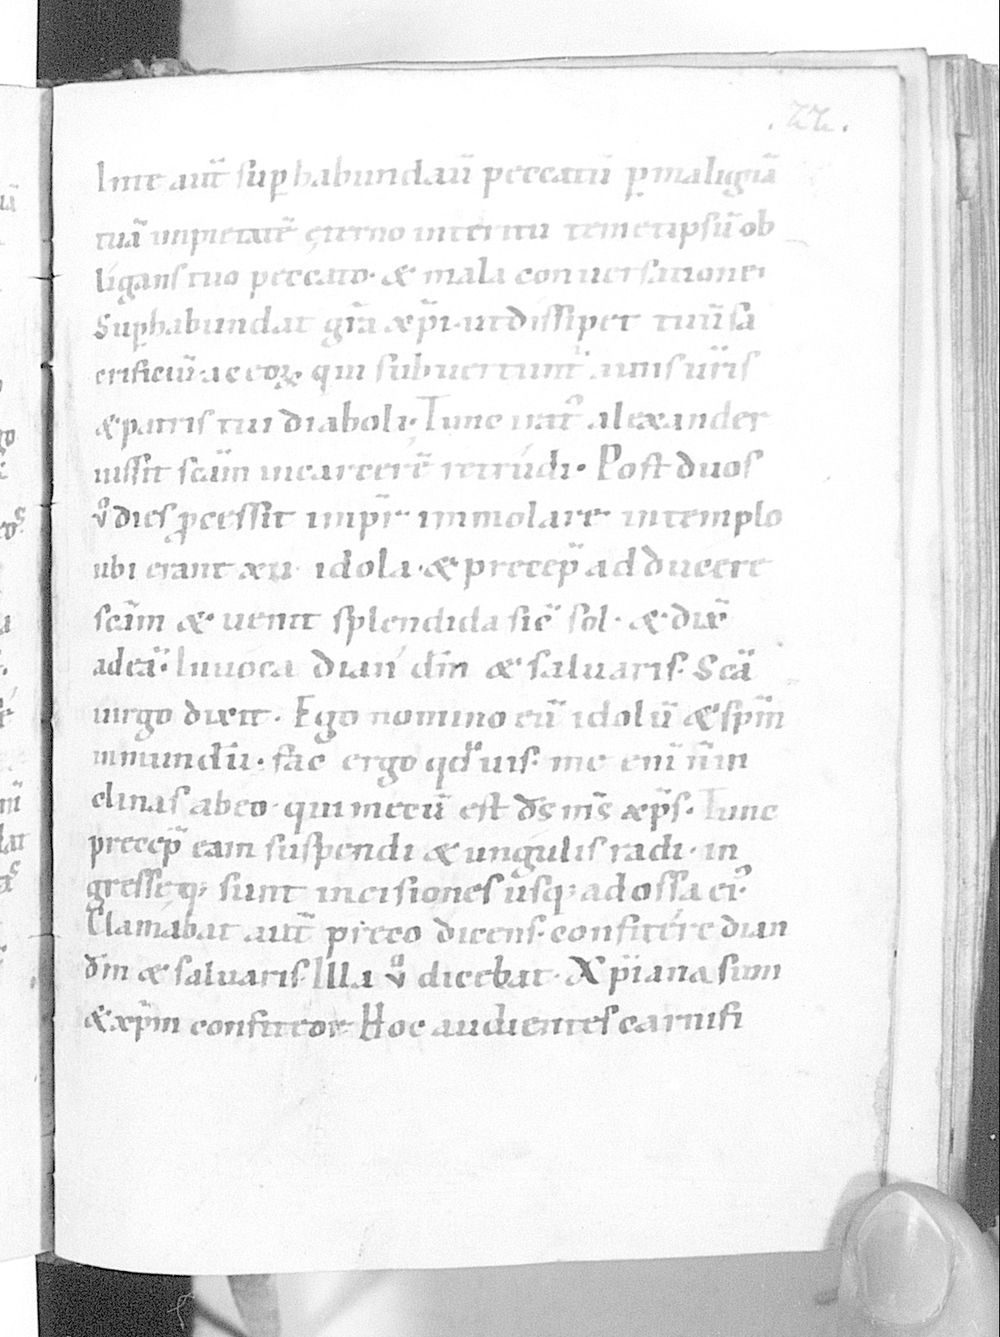 .22.
In te aut̄ sup̱habundau̅ peccatū p̱ maligiā
tuā impietatē ęterno interitu temetipsū ob
ligans tuo peccato· & mala conuersatione·
Sup̱habundat gr̄a xp̄i· ut dissipet tuū sa
crificiū· ac eoꝝ qui subuertunt᷑ auris ur̄is
& patris tui diaboli· Tunc irat᷒ alexander
iussit scām incarcerē retrúdi· Post duos
u͛ dies ꝓcessit imp̄r immolare in templo
ubi erant xii· idola· & precep̄ adducere
scām & uenit splendida sic̄ sol· & dix̄
ad eā· Inuoca dianā dn̄m & saluaris· Scā
uirgo dixit· Ego nomino eū idolū & sp̄m
inmundū· fac̄ ergo qd̄ uis· me enī n̄ in
clinas ab eo· qui mecū est dn̄s m̄s xp̄s· Tunc
precep̄ eam suspendi & ungulis radi· in
gresseq; sunt incisiones usq; ad ossa ei᷒·
Clamábat aut̄ preco dicens· confitére dian
dn̄m & saluaris· Illa u͛ dicebat· Xp̄iana sum
& xp̄m confiteor Hoc audientes carnifi